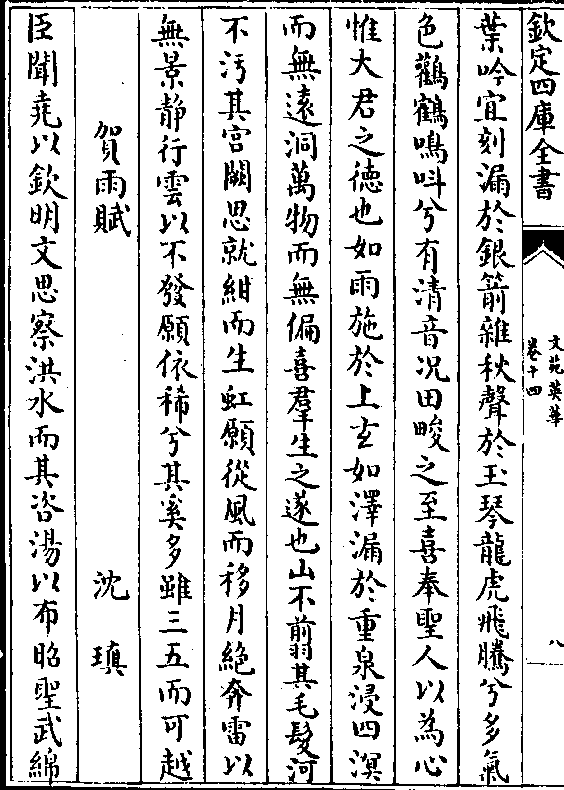 欽定四庫全書
文苑英華
卷十四
八
葉吟宜刻漏於銀箭雜秋聲於玉琴龍虎飛騰兮多氣
色鸛鶴鳴呌兮有清音况田畯之至喜奉聖人以為心
惟大君之德也如雨施於上玄如澤漏於重泉浸四溟
而無遠洞萬物而無偏喜羣生之遂也山不翦其毛髮河
不汚其宫闕思就紺而生虹願從風而移月絶奔雷以
無景静行雲以不發願依稀兮其奚多雖三五而可越
賀雨賦 沈瑱
臣聞堯以欽明文思察洪水而其咨湯以布昭聖武綿